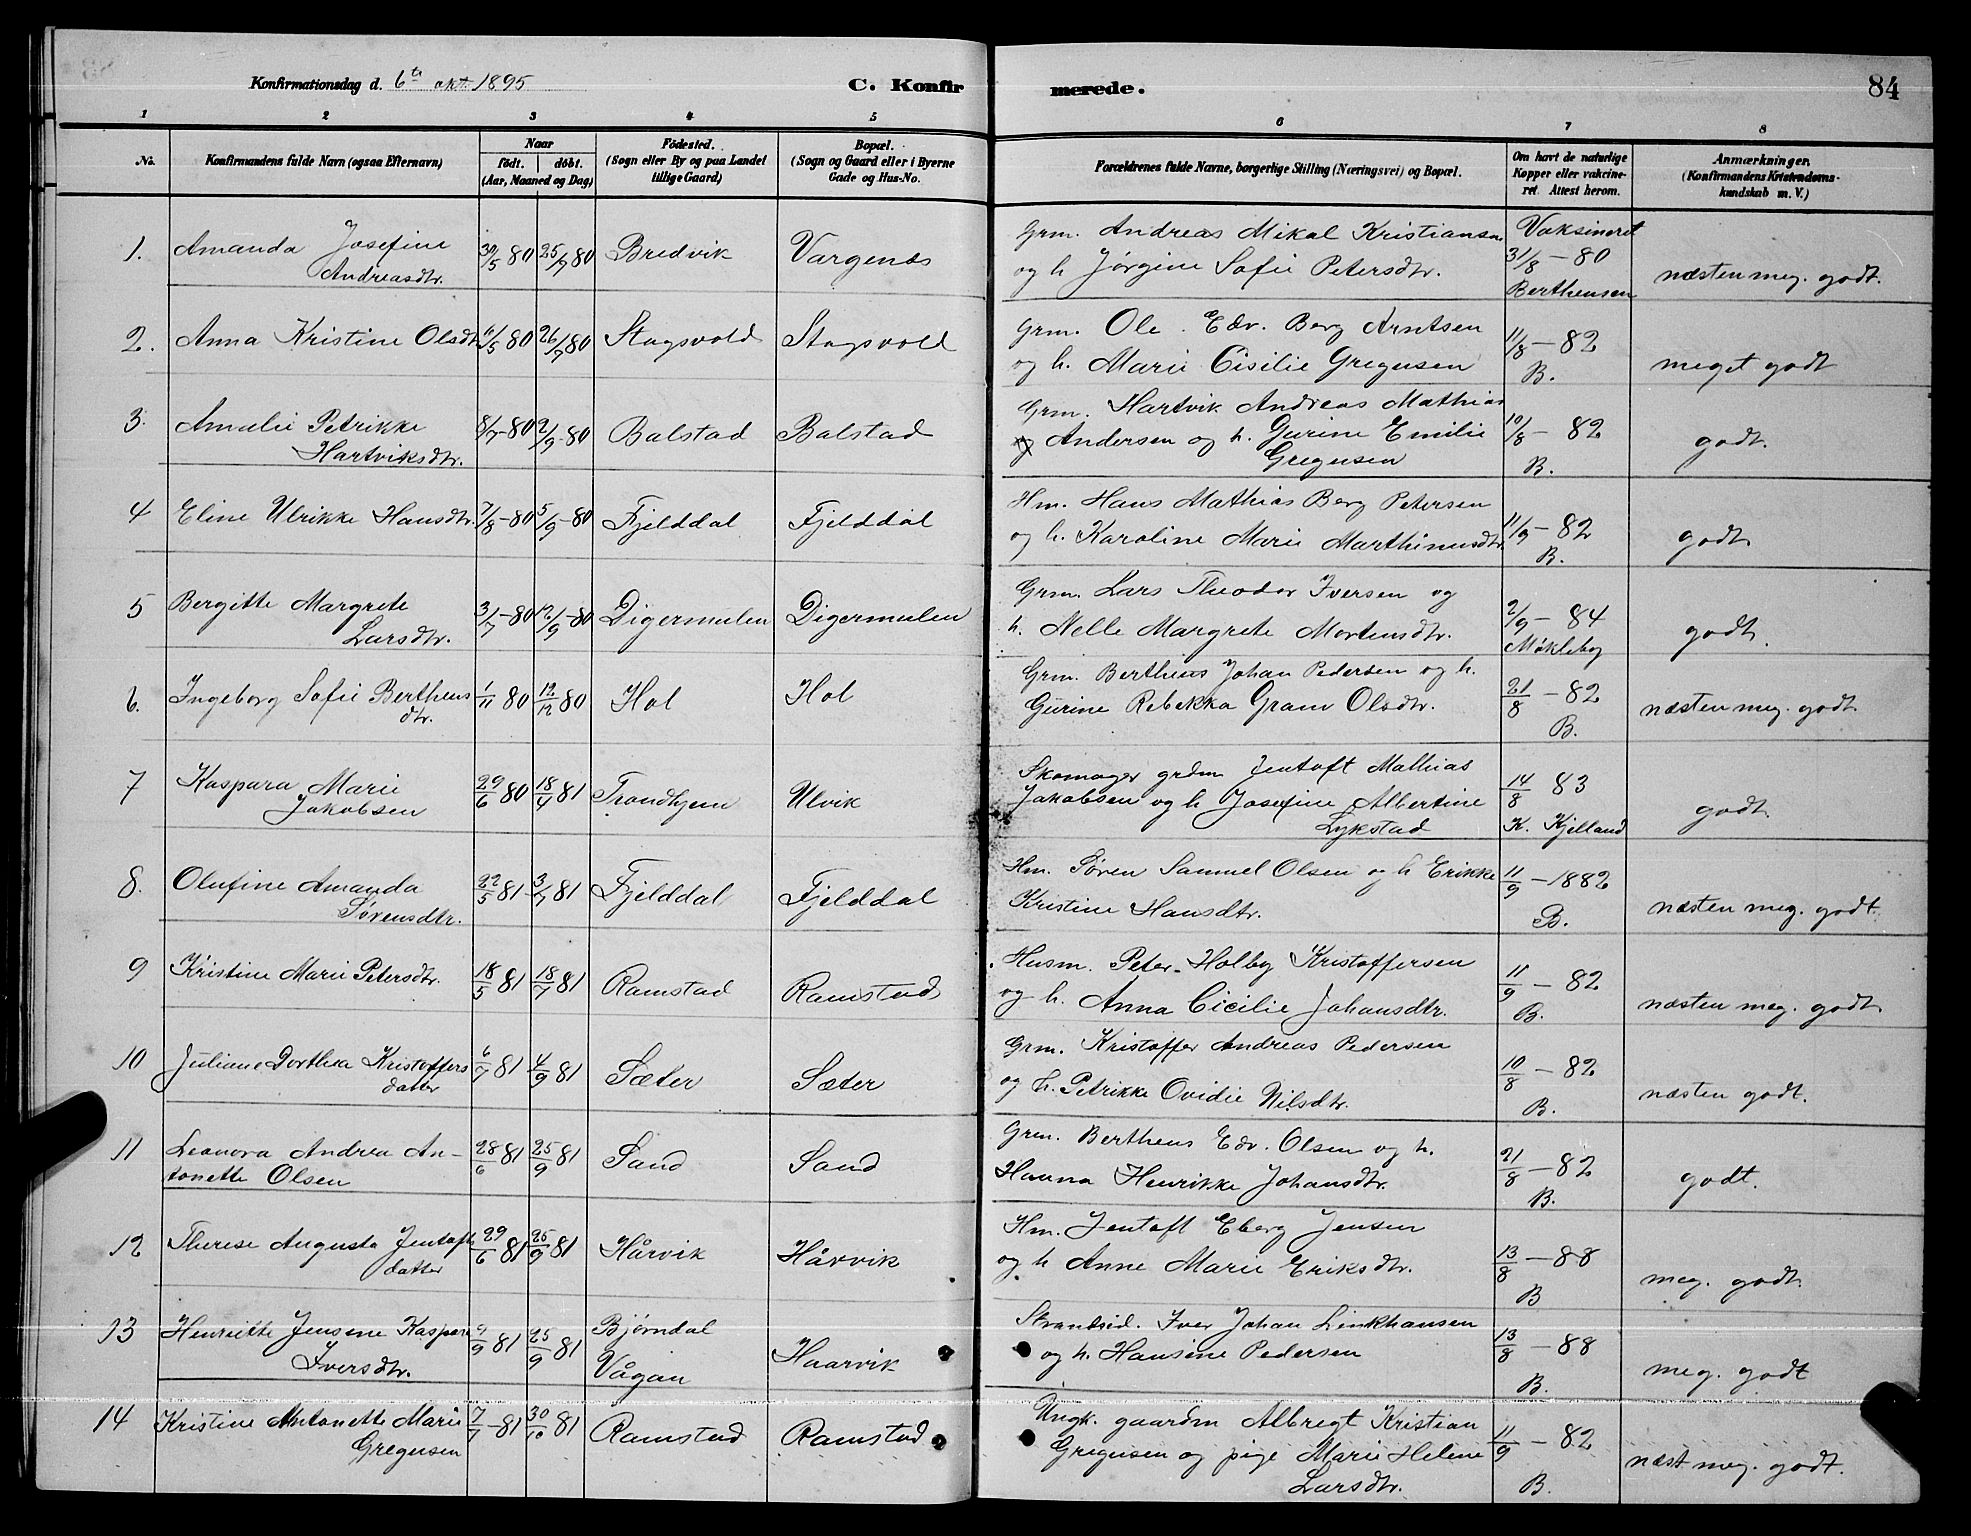 Konfirmationsdag d. 6te okt. 1895
C. Konfirmerede.
84
1 2 3 4 5 6 7 8
No. Konfirmandens fulde Navn (ogsaa Efternavn) Naar født. døbt. (Aar, Maaned og Dag) Fødested. (Sogn eller By og paa Landet tillige Gaard) Bopæl. (Sogn og Gaard eller i Byerne Gade og Hus-No. Forældrenes fulde Navne, borgerlige Stilling (Næringsvei) og Bopæl. Om havt de naturlige Kopper eller vakcineret. Attest herom. Anmærkninger. (Konfirmandens Kristendomskundskab m. V.)
1. Amanda Josefine Andreasdtr. 30/5 80 25/7 80 Bredvik Vargenæs Grm. Andreas Mikal Kristiansen og h Jørgine Sofie Petersdtr. Vaksineret 31/8 – 80 Berthensen næsten meg. godt.
2. Anna Kristine Olsdtr 11/5 80 26/7 80 Stagsvold Stagsvold Grm. Ole Edv. Berg Arntsen og h. Marie Cisilie Gregusen 11/8 – 82 B. meget godt
3. Amalie Petrikke Hartviksdtr. 8/7 – 80 2/9 – 80 Balstad Balstad Grm. Hartvik Andreas Mathias Andersen og h. Gurine Emilie Gregusen 10/8 – 82 B. godt.
4 Eline Ulrikke Hansdtr. 7/8 – 80 5/9 – 80 Fjelddal Fjelddal Hm. Hans Mathias Berg Petersen og h. Karoline Marie Marthinusdtr. 11/9 – 82 B. godt
5 Bergitte Margrete Larsdtr. 3/7 – 80 12/9 – 80 Digermulen Digermulen Grm. Lars Theodor Iversen og h. Nelle Margrete Mortensdtr. 2/9 – 84 Møkleby godt.
6. Ingeborg Sofie Berthens dtr. 1/11 80 12/12 80 Hol Hol Grm. Berthens Johan Pedersen og h. Gurine Rebekka Gram Olsdtr. 21/8 – 82 B. næsten meg. godt.
7 Kaspara Marie Jakobsen 29/6 80 18/4 81 Trondhjem Ulvik Skomager grdm Jentoft Mathias Jakobsen og h Josefine Albertine Lykstad 14/8 83 K. Kjelland godt.
8. Olufine Amanda Sørensdtr. 22/5 81 3/7 81 Fjelddal Fjelddal Hm. Søren Samuel Olsen og h Erikke Kristine Hansdtr. 11/9 – 1882 B. næsten meg. godt
9 Kristine Marie Petersdtr. 18/5 81 18/7 81 Ramstad Ramstad Husm. Peter Holby Kristoffersen og h. Anna Cicilie Johansdtr. 11/9 – 82 B. næsten meg. godt
10 Juliane Dorthea Kristoffers datter 6/7 81 4/9 81 Sæter Sæter Grm. Kristoffer Andreas Pedersen og h. Petrikke Ovidie Nilsdtr. 10/8 – 82 B. næsten godt.
11 Leonora Andrea Antonette Olsen 28/6 81 25/9 81 Sand Sand Grm. Berthens Edv. Olsen og h. Hanna Henrikke Johansdtr. 21/8 – 82 B. godt.
12 Therese Augusta Jentofts datter 29/6 81 25/9 81 Hårvik Hårvik Hm. Jentoft Eberg Jensen og h Anne Marie Eriksdtr. 13/8 – 88 B meg. godt
13 Henriette Jensine Kaspara Iversdtr. 9/9 81 25/9 81 Bjørndal Vågan Haarvik Strandsid. Iver Johan Linkhausen og h. Hansine Pedersen 13/8 – 88 B. meg. godt
14 Kristine Antonette Marie Gregusen 7/7 – 81 30/10 81 Ramstad Ramstad Ungk. gaardm Albregt Kristian Gregusen og pige Marie Helene Larsdtr. 11/9 – 82 B. næst meg. godt.